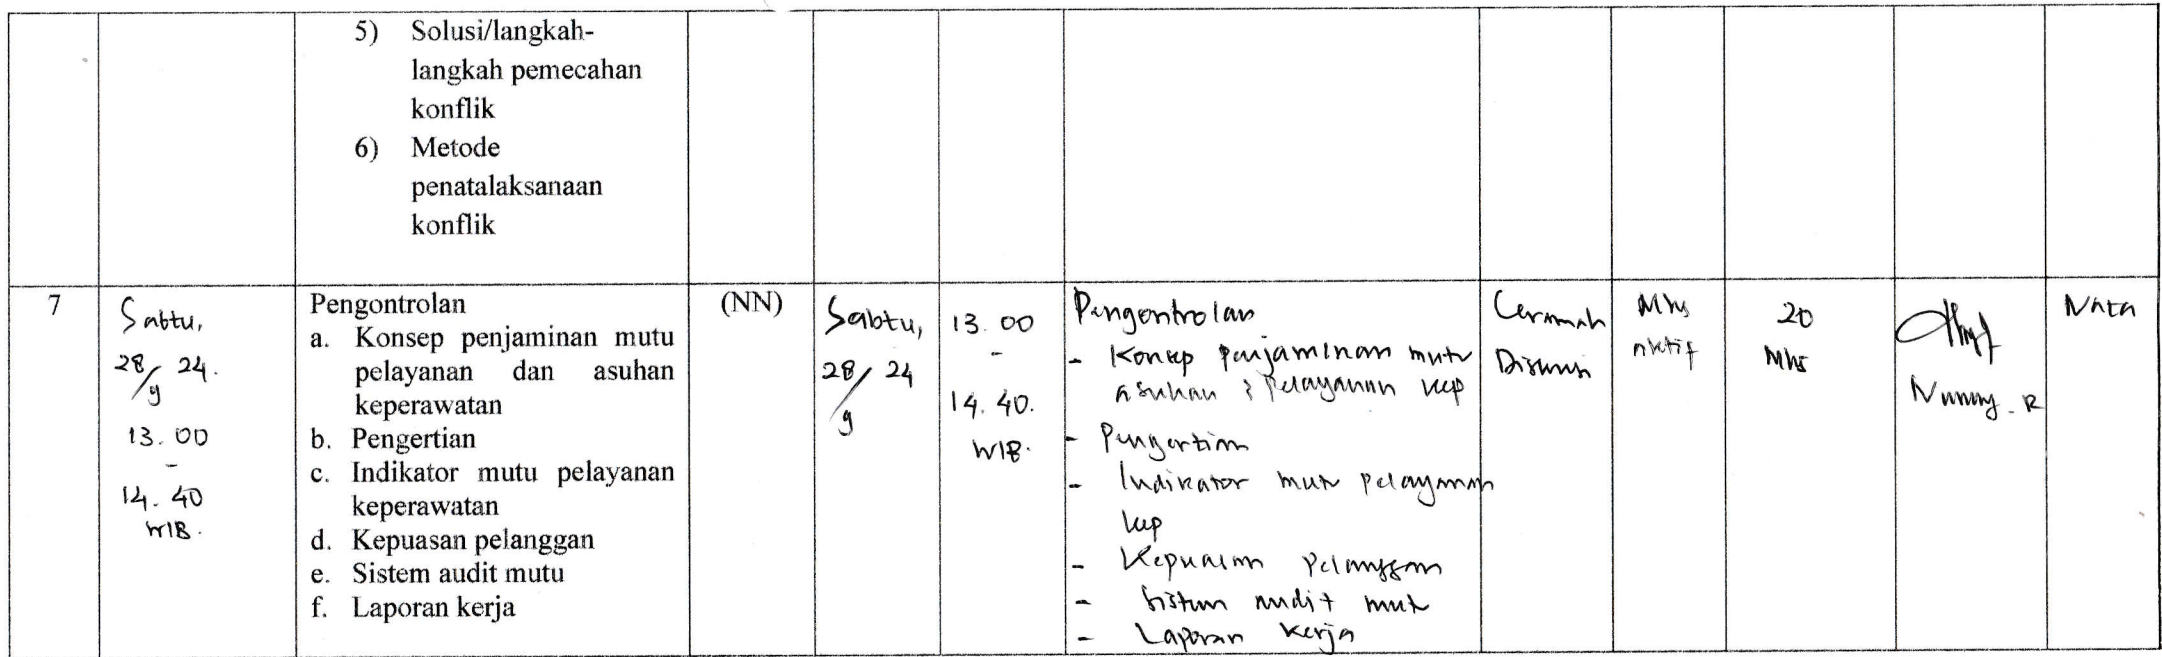 5) Solusi/langkah-
langkah pemecahan
konflik
6) Metode
penatalaksanaan
konflik
7
Sabtu,
28/9 24.
13.00
-
14.40
WIB.
Pengontrolan
a. Konsep penjaminan mutu
pelayanan dan asuhan
keperawatan
b. Pengertian
c. Indikator mutu pelayanan
keperawatan
d. Kepuasan pelanggan
e. Sistem audit mutu
f. Laporan kerja
(NN)
Sabtu,
28/9 24
13.00
-
14.40.
WIB.
Pengontrolan
- Konsep penjaminan mutu
asuhan & pelayanan kep
- Pengertian
- Indikator mutu pelayanan
kep
- Kepuasan pelanggan
- Sistem audit mutu
- Laporan kerja
Ceramah
Diskusi
Mhs
aktif
20
Mhs
Nunung. R
Nata